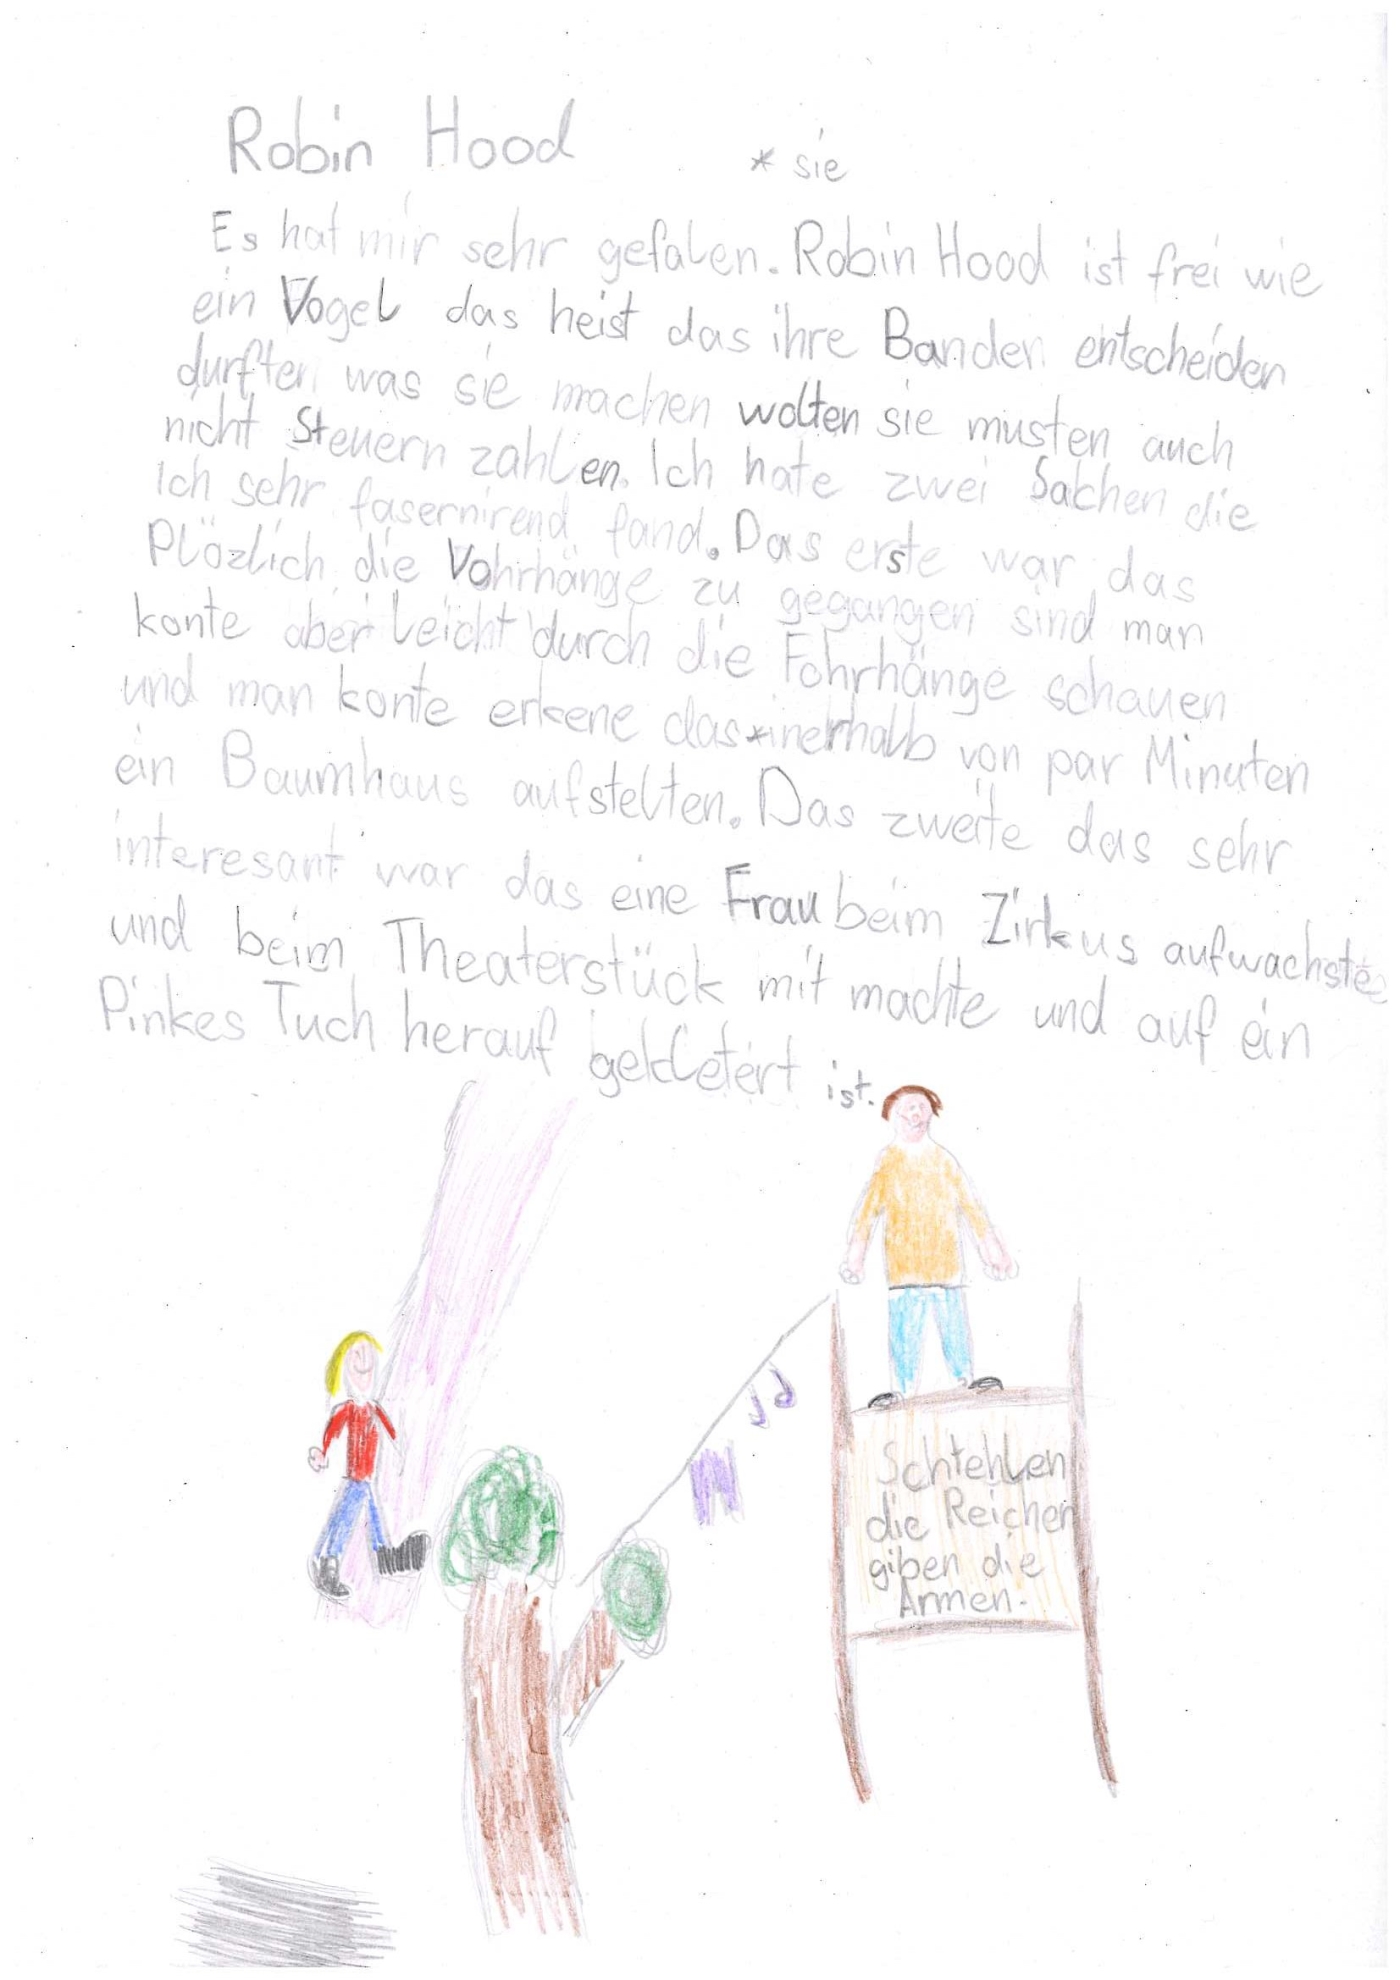 Robin Hood
* sie
Es hat mir sehr gefalen. Robin Hood ist frei wie
ein Vogel das heist das ihre Banden entscheiden
durften was sie machen wolten sie musten auch
nicht Steuern zahlen. Ich hate zwei Sachen die
Ich sehr fasernirend fand. Das erste war das
Plözlich die Vohrhänge zu gegangen sind man
konte aber leicht durch die Fohrhänge schauen
und man konte erkene das * inerhalb von par Minuten
ein Baumhaus aufstelten. Das zweite das sehr
interesant war das eine Frau beim Zirkus aufwachste
und beim Theaterstück mit machte und auf ein
Pinkes Tuch herauf gekletert ist.
Schtehlen
die Reichen
giben die
Armen.